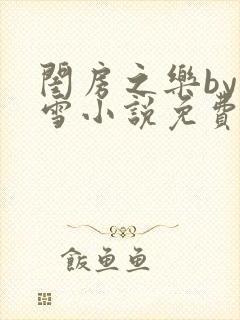 閨房之樂by
雪小說免費
飯魚魚